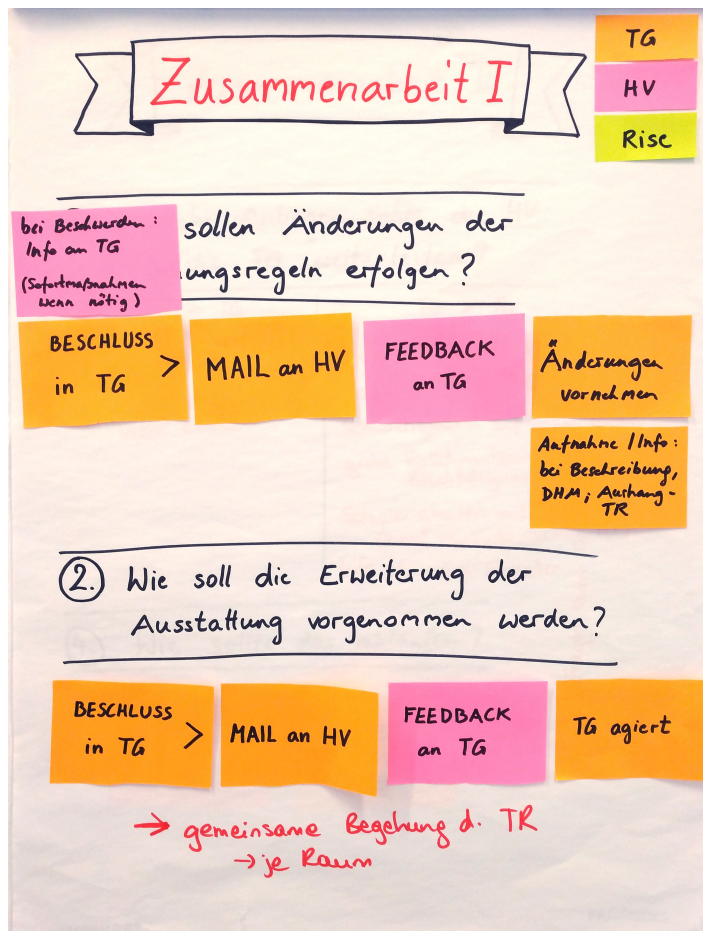 Zusammenarbeit I
TG
HV
Rise
bei Beschwerden:
Info an TG
(Sofortmaßnahmen
wenn nötig)
sollen Änderungen der
ungsregeln erfolgen?
BESCHLUSS
in TG >
MAIL an HV
FEEDBACK
an TG
Änderungen
vornehmen
Aufnahme / Info:
bei Beschreibung,
DHM, Aushang-
TR
2. Wie soll die Erweiterung der
Ausstattung vorgenommen werden?
BESCHLUSS
in TG >
MAIL an HV
FEEDBACK
an TG
TG agiert
→ gemeinsame Begehung d. TR
→ je Raum